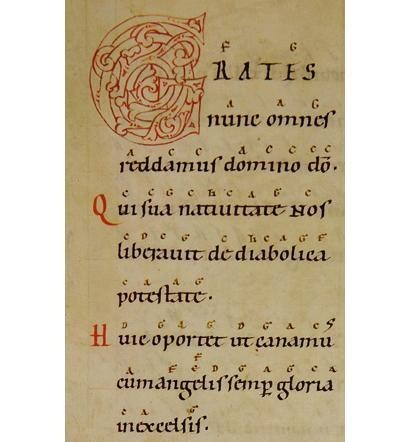 GRATES
nunc omnes
reddamus domino dō.
Qui sua natiuitate nos
liberauit de diabolica
potestate.
Huic oportet ut canamus
cum angelis semp̱ gloria
in excelsis.